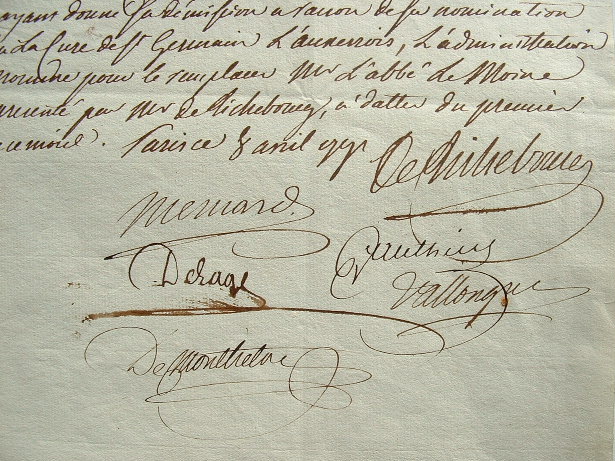 ayant donné sa démission a raison de sa nomination
a La Cure de St Germain L'auxerrois, L'administration
nomme pour le remplacer Mr L'abbé Le Moine
présenté par Mr de Richebourg, a datter du premier
de ce mois. Paris ce 8 avril 1791
De Richebourg
Menard
Gauthier
Derage
Vallongue
De Montholon